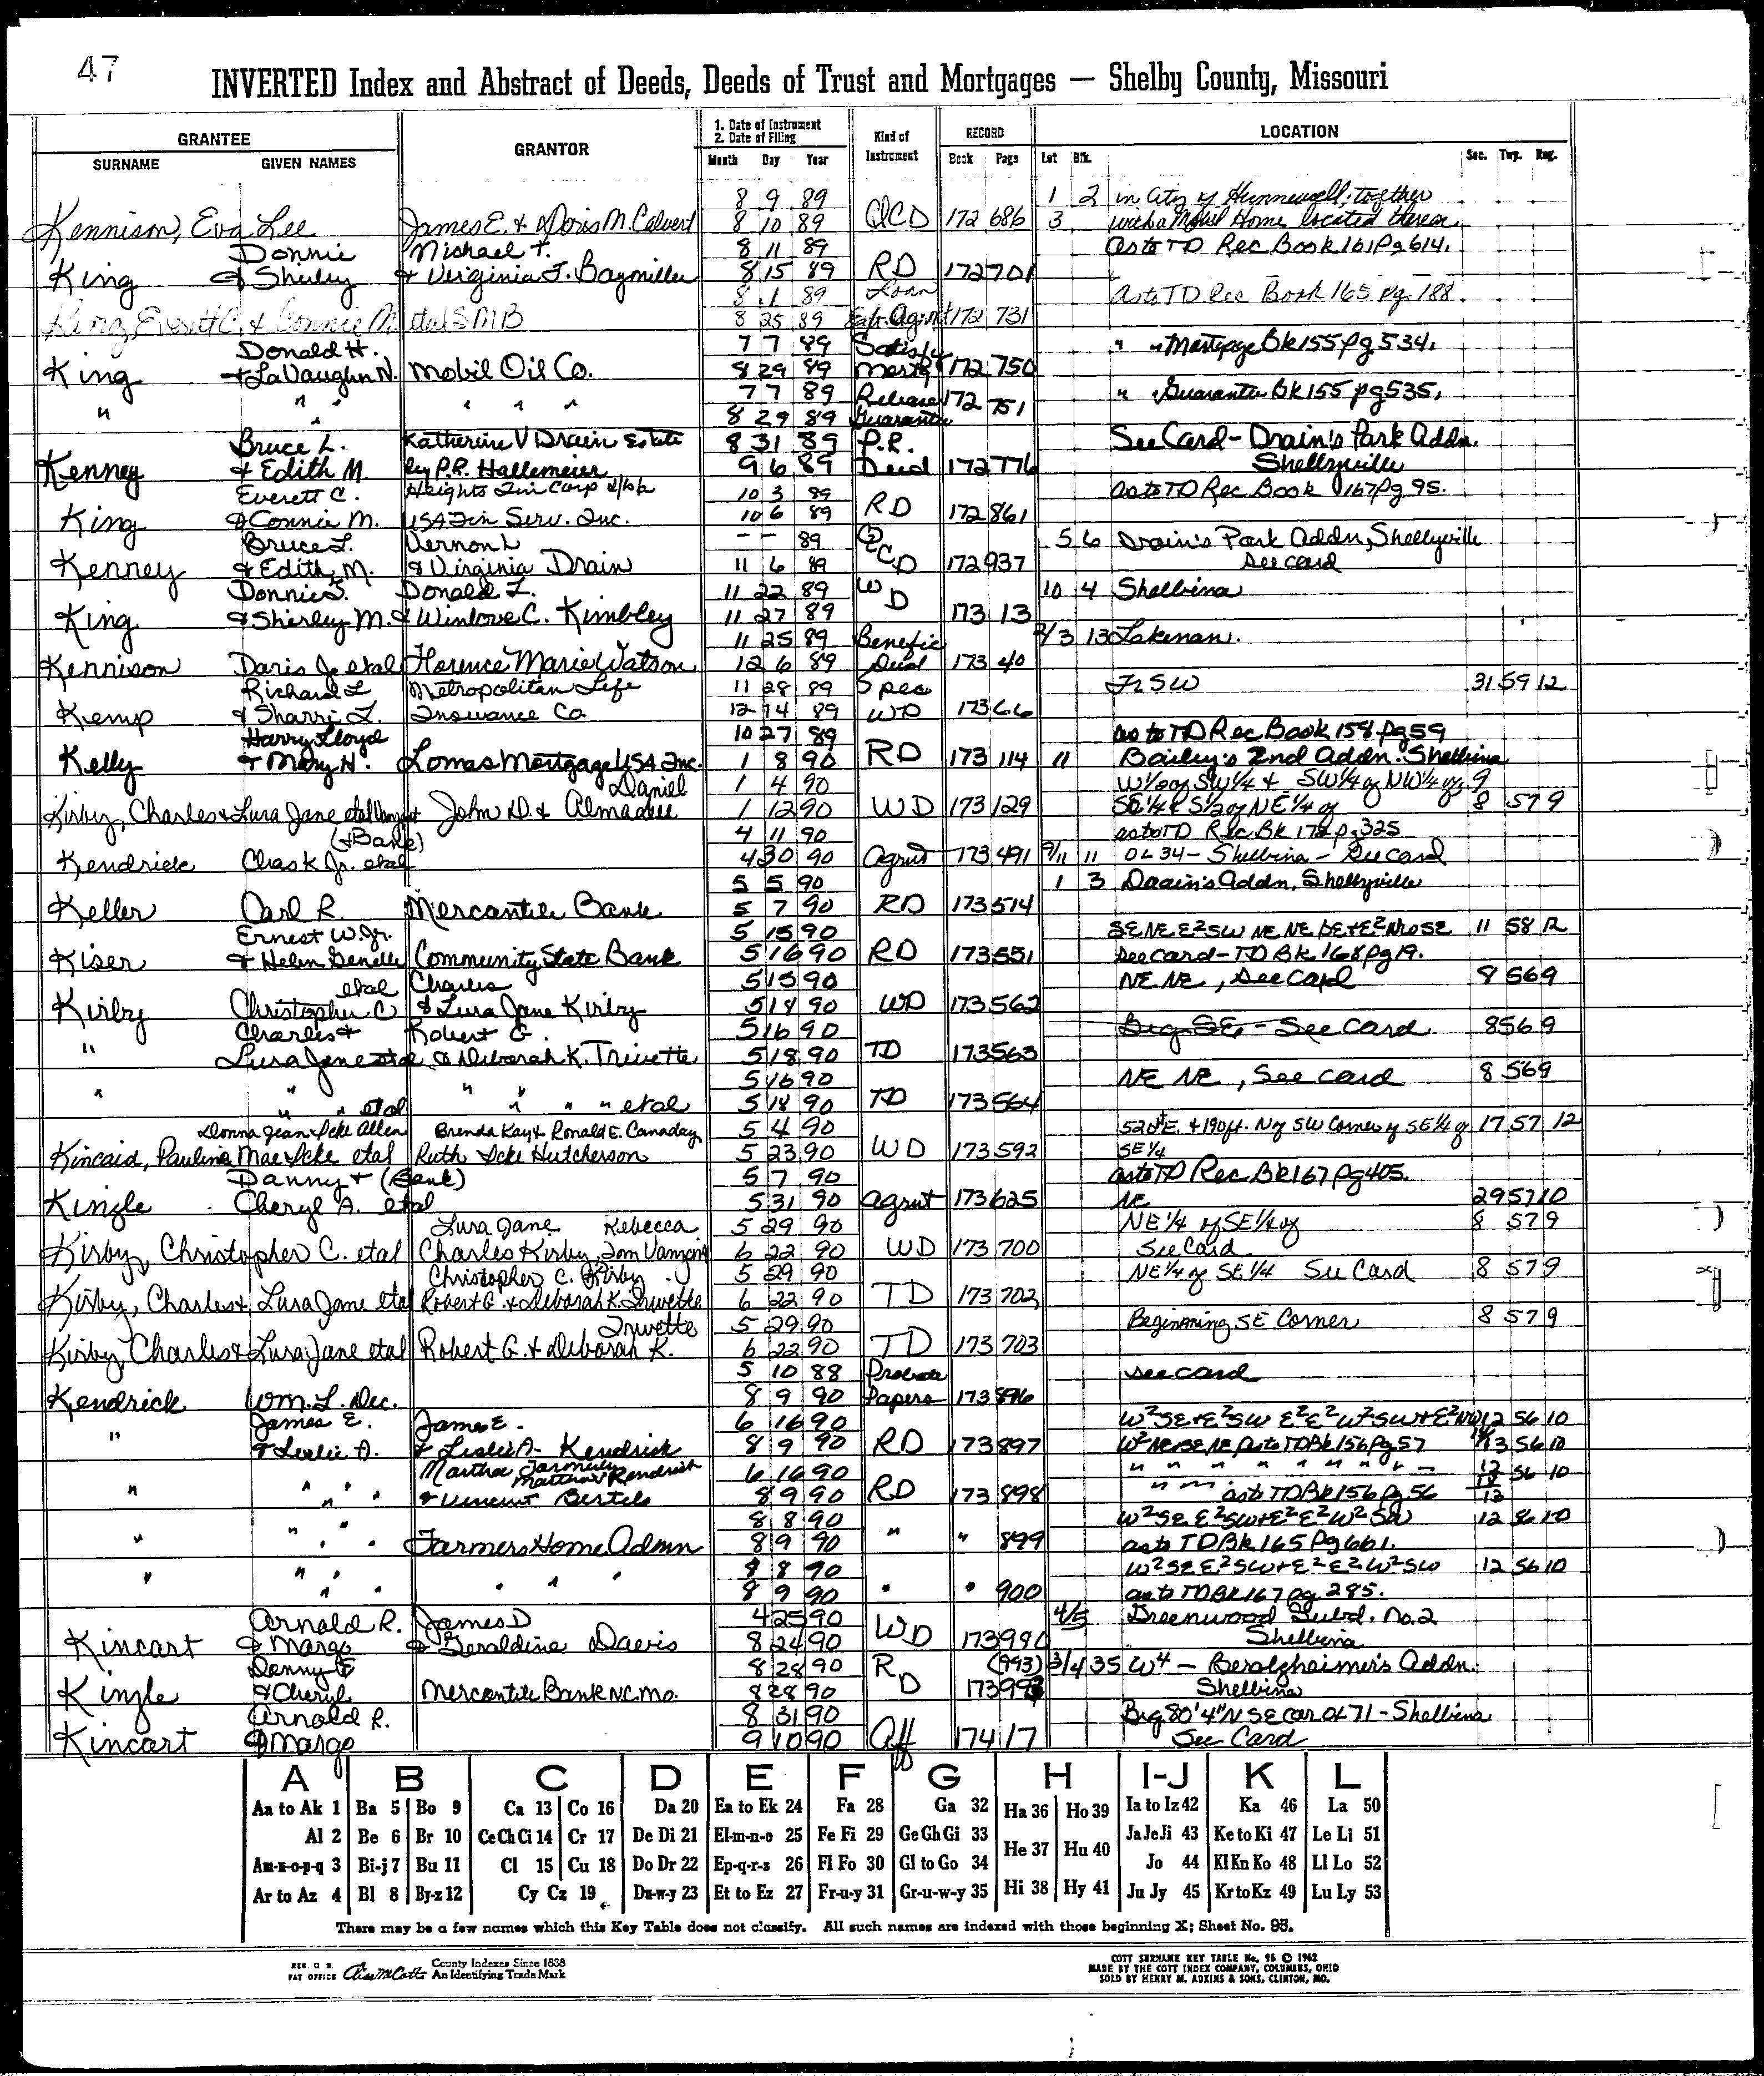 47
INVERTED Index and Abstract of Deeds, Deeds of Trust and Mortgages — Shelby County, Missouri
GRANTEE GRANTOR 1. Date of Instrument 2. Date of Filing Kind of Instrument RECORD LOCATION
SURNAME GIVEN NAMES Month Day Year Book Page Lot Blk. Sec. Twp. Rng.
8 9 89 1 2 in City of Hunnewell, together
Kennison, Eva Lee James E. & Doris M. Calvert 8 10 89 QCD 172 686 3 with a Mobil Home located thereon
Donnie Michael T. 8 11 89 as to TD Rec Book 161 Pg 614.
King & Shirley & Virginia J. Baymiller 8 15 89 RD 172 701
8 1 89 Loan as to TD Rec Book 165 pg. 188
King, Everett C. & Connie M. etal SMB 8 25 89 Extr. Agmt 172 731
Donald H. 7 7 89 Satisfy " " Mortgage Bk 155 Pg 534.
King & LaVaughn N. Mobil Oil Co. 8 29 89 Mortg 172 750
7 7 89 Release 172 751 " Guarantee Bk 155 pg 535,
" " " " " " 8 29 89 Guarantee
Bruce L. Katherine V Drain Estate 8 31 89 P.R. See Card - Drain's Park Addn.
Kenney & Edith M. by P.R. Hallemeier 9 6 89 Deed 172 776 Shelbyville
Everett C. Heights Fin Corp d/b/a 10 3 89 as to TD Rec Book 167 Pg 95.
King & Connie M. USA Fin Serv. Inc. 10 6 89 RD 172 861
Bruce L. Vernon L - - 89 5 6 Drain's Park Addn, Shelbyville
Kenney & Edith M. & Virginia Drain 11 6 89 QCD 172 937 See card
Donnie S. Donald L. 11 22 89 WD 10 4 Shelbina
King & Shirley M. & Winlove C. Kimbley 11 27 89 173 13
11 25 89 Benefic 2/3 13 Lakenan.
Kennison Doris J. etal Florence Marie Watson 12 6 89 Deed 173 40
Richard L Metropolitan Life 11 28 89 Spec Fr SW 31 59 12
Kemp & Sharri L. Insurance Co 12 14 89 WD 173 66
Harry Lloyd 10 27 89 as to TD Rec Book 158 Pg 59
Kelly & Mary N. Lomas Mortgage USA Inc. 1 8 90 RD 173 114 11 Bailey's 2nd Addn. Shelbina
Daniel 1 4 90 W 1/2 of SW 1/4 & SW 1/4 of NW 1/4 of 9
Kirby, Charles & Lura Jane etal John D. & Almadell 1 12 90 WD 173 129 SE 1/4 & S 1/2 of NE 1/4 of 8 57 9
(& Bank) 4 11 90 as to TD Rec Bk 172 pg 325
Kendrick Chas K Jr. etal 4 30 90 Agmt 173 491 9/11 11 OL 34 - Shelbina - See card
5 5 90 1 3 Drain's Addn, Shelbyville
Keller Carl R. Mercantile Bank 5 7 90 RD 173 514
Ernest W. Jr. 5 15 90 11 58 12
Kiser & Helen Genelle Community State Bank 5 16 90 RD 173 551 See card - TD Bk 168 Pg 19.
etal Charles 5 15 90 NE NE, See Card 8 56 9
Kirby Christopher C & Lura Jane Kirby 5 18 90 WD 173 562
Charles & Robert G. 5 16 90 Beg SE - See Card 8 56 9
" Lura Jane etal & Deborah K. Trivette 5 18 90 TD 173 563
5 16 90 NE NE, See card 8 56 9
" " " etal " " " " etal 5 18 90 TD 173 564
Donna Jean Icke Allen Brenda Kay & Ronald E. Canaday 5 4 90 520 ft E. & 190 ft. N of SW Corner of SE 1/4 of 17 57 12
Kincaid, Paulina Mae Icke etal Ruth Icke Hutcherson 5 23 90 WD 173 592 SE 1/4
Danny & (Bank) 5 7 90 as to TD Rec Bk 167 Pg 405.
Kinzle Cheryl A. etal 5 31 90 Agmt 173 625 NE 29 57 10
Lura Jane Rebecca 5 29 90 NE 1/4 of SE 1/4 of 8 57 9
Kirby, Christopher C. etal Charles Kirby, Tom 6 22 90 WD 173 700 See Card
Christopher C. Kirby 5 29 90 NE 1/4 of SE 1/4 See Card 8 57 9
Kirby, Charles & Lura Jane etal Robert G. & Deborah K. Trivette 6 22 90 TD 173 702
Trivette 5 29 90 Beginning SE Corner 8 57 9
Kirby, Charles & Lura Jane etal Robert G. & Deborah K. 6 22 90 TD 173 703
5 10 88 Probate see card
Kendrick Wm. L. Dec. 8 9 90 Papers 173 896
James E. James E. 6 16 90 W²SE & E²SW E²E²W²SW & E²NW 12 56 10
" & Leslie A. & Leslie A. Kendrick 8 9 90 RD 173 897 as to TD Bk 156 Pg 57 13 56 10
Martha Formerly Matthew Kendrick 6 16 90 " " " " " " " 12 56 10
" " " " & Vincent Bertels 8 9 90 RD 173 898 " " as to TD Bk 156 Pg 56 13
8 8 90 W²SE E²SW & E²E²W²SW 12 56 10
" " " " Farmers Home Admn 8 9 90 " " 899 as to TD Bk 165 Pg 661.
8 8 90 W²SE E²SW & E²E²W²SW 12 56 10
" " " " " " " 8 9 90 " " 900 as to TD Bk 167 pg 285.
Arnold R. James D 4 25 90 4/5 Greenwood Subd. No. 2
Kincart & Margo & Geraldine Davis 8 24 90 WD 173 980 Shelbina
Danny E 8 28 90 RD (993) 3/4 35 W⁴ - Berolzheimer's Addn.
Kinzle & Cheryl Mercantile Bank NC. Mo. 8 28 90 173 993 Shelbina
Arnold R. 8 31 90 Beg 80'4" N SE Cor OL 71 - Shelbina
Kincart & Margo 9 10 90 Aff 174 17 See Card
A B C D E F G H I-J K L
Aa to Ak 1 Ba 5 Bo 9 Ca 13 Co 16 Da 20 Ea to Ek 24 Fa 28 Ga 32 Ha 36 Ho 39 Ia to Iz 42 Ka 46 La 50
Al 2 Be 6 Br 10 Ce Ch Ci 14 Cr 17 De Di 21 El-m-n-o 25 Fe Fi 29 Ge Gh Gi 33 He 37 Hu 40 Ja Je Ji 43 Ke to Ki 47 Le Li 51
Am-n-o-p-q 3 Bi-j 7 Bu 11 Cl 15 Cu 18 Do Dr 22 Ep-q-r-s 26 Fl Fo 30 Gl to Go 34 Jo 44 Kl Kn Ko 48 Ll Lo 52
Ar to Az 4 Bl 8 By-z 12 Cy Cz 19 Du-w-y 23 Et to Ez 27 Fr-u-y 31 Gr-u-w-y 35 Hi 38 Hy 41 Ju Jy 45 Kr to Kz 49 Lu Ly 53
There may be a few names which this Key Table does not classify. All such names are indexed with those beginning X; Sheet No. 95.
REG. U. S. PAT OFFICE County Indexes Since 1838 An Identifying Trade Mark
COTT SURNAME KEY TABLE No. 96 © 1962
MADE BY THE COTT INDEX COMPANY, COLUMBUS, OHIO
SOLD BY HENRY M. ADKINS & SONS, CLINTON, MO.